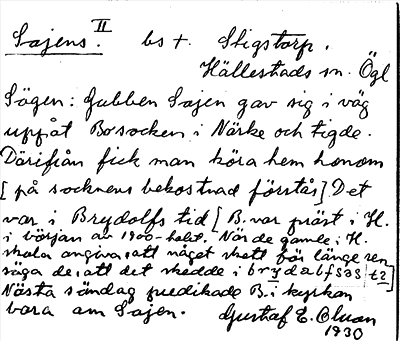 Sajens. II bs t. Stigstorp.
Hällestads sn. Ögl
Sägen: Gubben Sajen gav sig i väg
uppåt Bo socken i Närke och tigde.
Därifrån fick man köra hem honom
[på socknens bekostnad förstås] Det
var i Brydolfs tid [B. var präst i H.
i början av 1900-talet. När de gamle i H.
skola angiva, att något skett för länge sen
säga de, att det skedde i brydåbfsas t2]
Nästa söndag predikade B. i kyrkan
bara om Sajen. Gustaf E. Olsson
1930